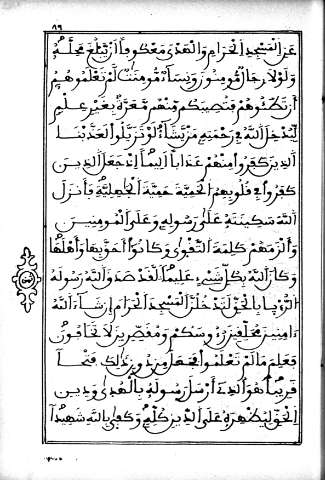 ٨٦
عن المسجد الحرام والهدي معكوفا أن يبلغ محله
ولولا رجال مومنون ونساء مومنت لم تعلموهم
أن تطئوهم فتصيبكم منهم معرة بغير علم
ليدخل الله في رحمته من يشاء لو تزيلوا لعذبنا
الذين كفروا منهم عذابا أليما إذ جعل الذين
كفروا في قلوبهم الحمية حمية الجهلية فأنزل
الله سكينته على رسوله وعلى المومنين
وألزمهم كلمة التقوى وكانوا أحق بها وأهلها
وكان الله بكل شيء عليما لقد صدق الله رسوله
الرءيا بالحق لتدخلن المسجد الحرام إن شاء الله
ءامنين محلقين رءوسكم ومقصرين لا تخافون
فعلم ما لم تعلموا فجعل من دون ذلك فتحا
قريبا هو الذي أرسل رسوله بالهدى ودين
الحق ليظهره على الدين كله وكفى بالله شهيدا